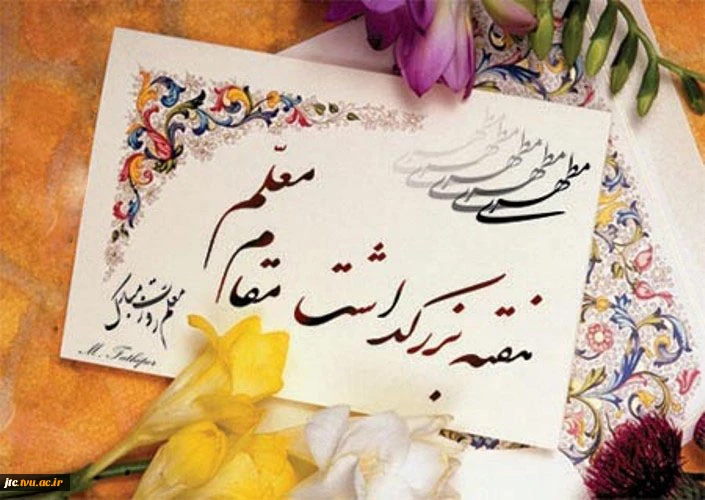 مطهری مطهری مطهری مطهری مطهری
هفته بزرگداشت مقام معلّم
معلم روزت مبارک
M. Fathipor
jtc.tvu.ac.ir